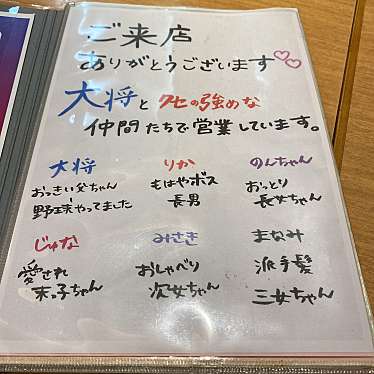 ご来店
ありがとうございます♡♡
大将とクセの強めな
仲間たちで営業しています。
大将
おっきい父ちゃん
野球やってました
りか
もはやボス
長男
のんちゃん
おっとり
長女ちゃん
じゅな
愛され
末っ子ちゃん
みさき
おしゃべり
次女ちゃん
まなみ
派手髪
三女ちゃん